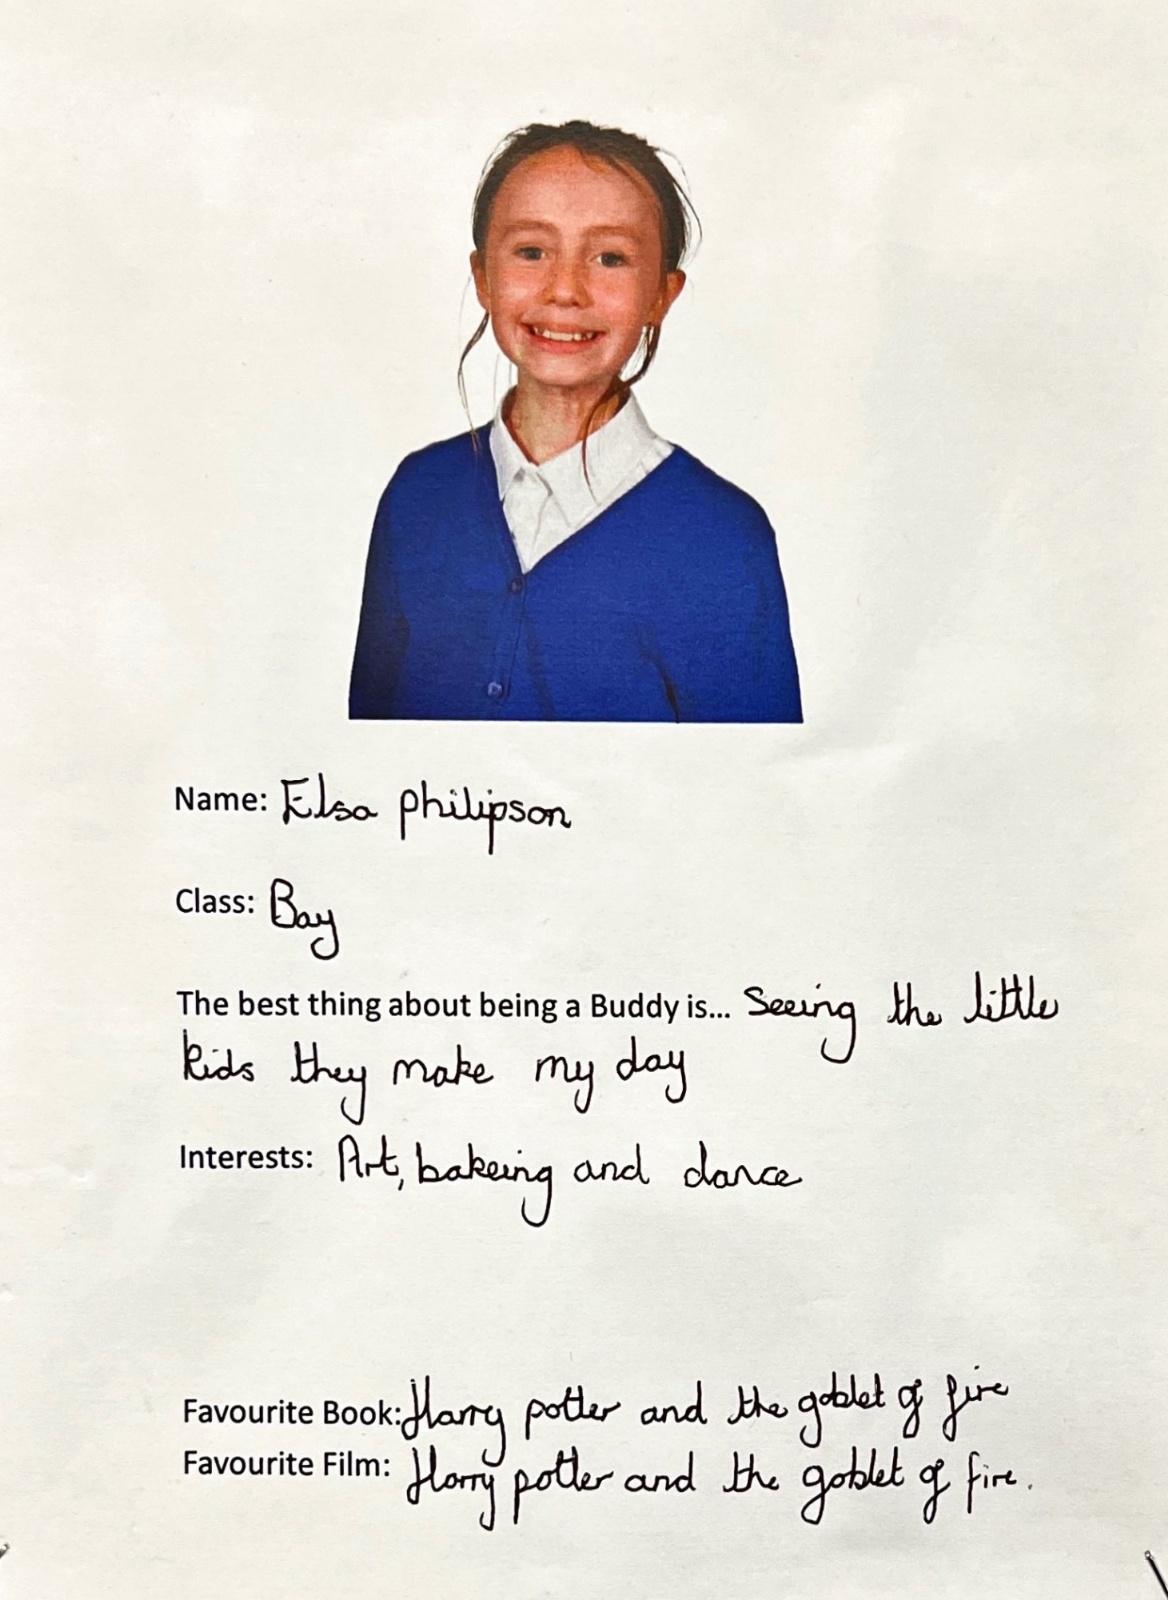 Name: Elsa philipson
Class: Bay
The best thing about being a Buddy is... Seeing the little
kids they make my day
Interests: Art, bakeing and dance
Favourite Book: Harry potter and the goblet of fire
Favourite Film: Harry potter and the goblet of fire.